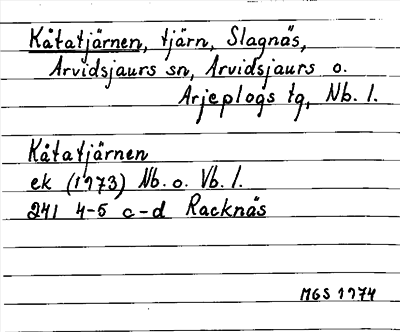 Kåtatjärnen, tjärn, Slagnäs,
Arvidsjaurs sn, Arvidsjaurs o.
Arjeplogs tg, Nb. l.
Kåtatjärnen
ek (1973) Nb. o. Vb. l.
241 4-5 c-d Racknäs
MGS 1974